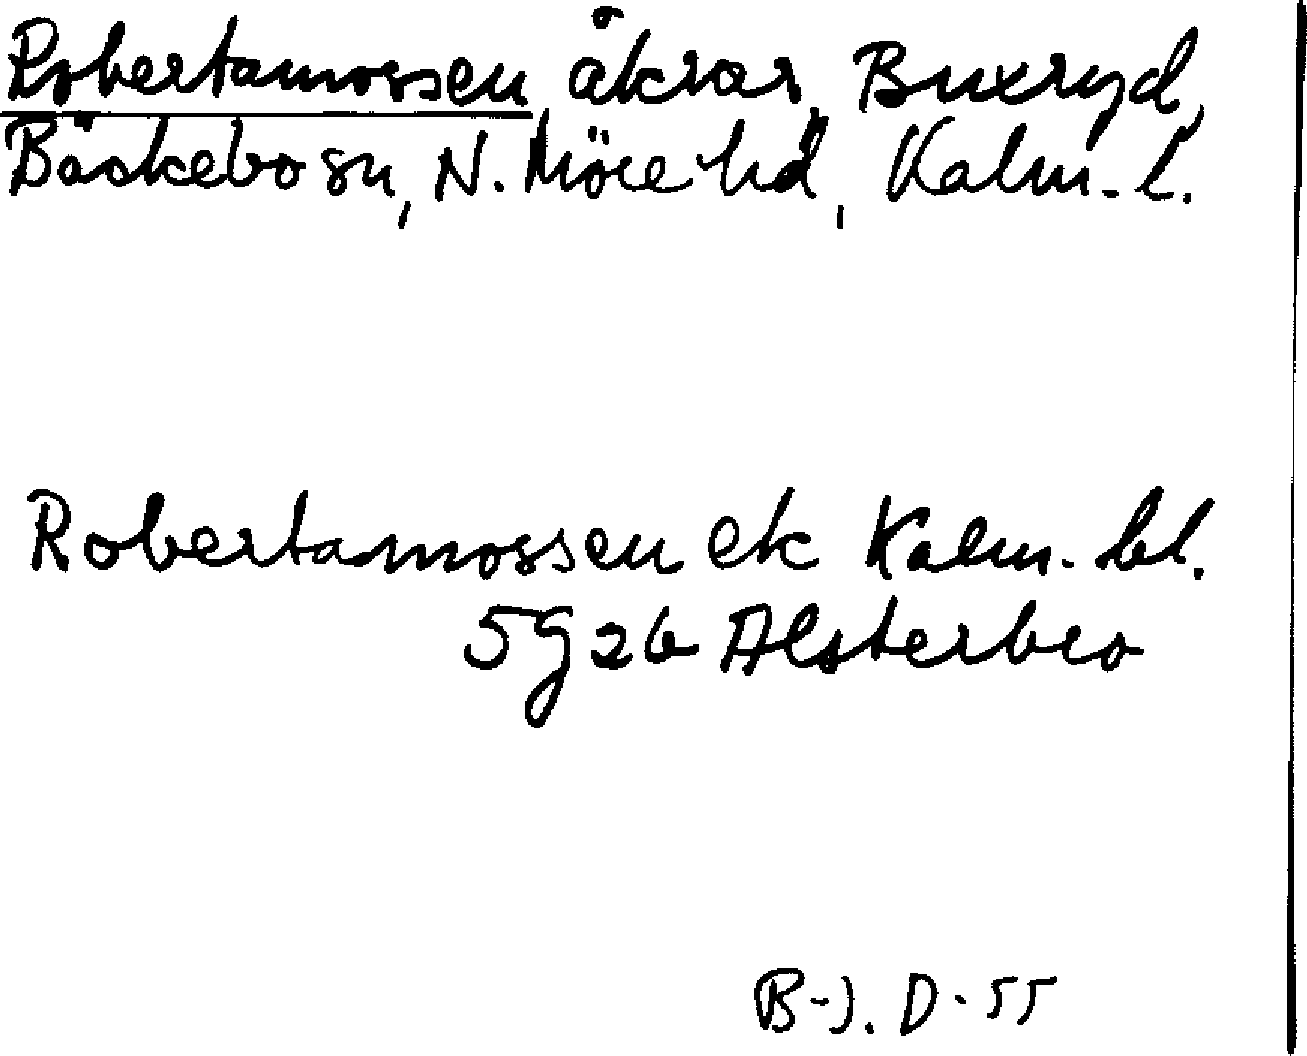 Robertamossen, åkrar, Buxryd,
Bäckebo sn, N. Möre hd, Kalm. l.
Robertamossen ek Kalm. bl.
5g2b Alsterbro
B-J. D-55